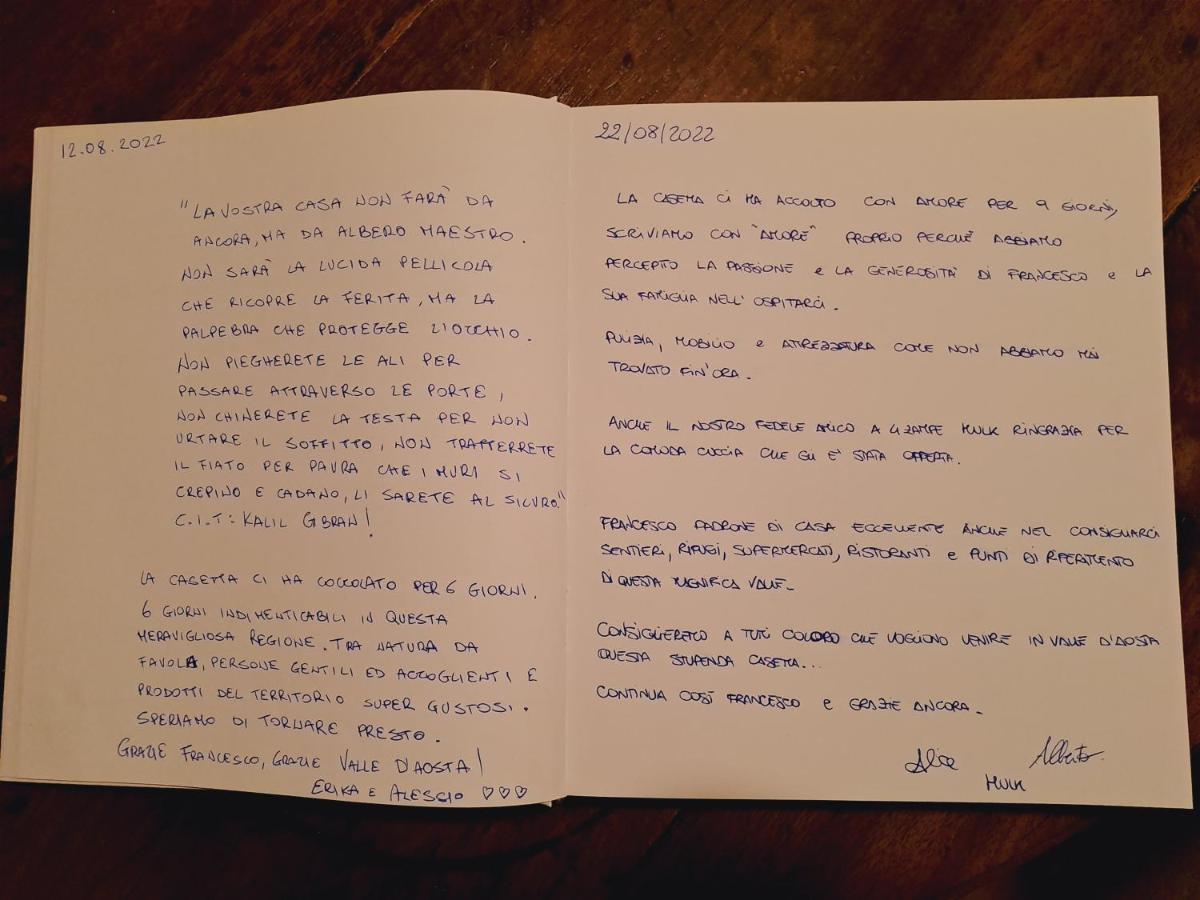 12.08.2022
"LA VOSTRA CASA NON FARÀ DA
ANCORA, MA DA ALBERO MAESTRO.
NON SARÀ LA LUCIDA PELLICOLA
CHE RICOPRE LA FERITA, MA LA
PALPEBRA CHE PROTEGGE L'OCCHIO.
NON PIEGHERETE LE ALI PER
PASSARE ATTRAVERSO LE PORTE,
NON CHINERETE LA TESTA PER NON
URTARE IL SOFFITTO, NON TRATTERRETE
IL FIATO PER PAURA CHE I MURI SI
CREPINO E CADANO, LÌ SARETE AL SICURO"
C.I.T: KALIL GIBRAN!
LA CASETTA CI HA COCCOLATO PER 6 GIORNI.
6 GIORNI INDIMENTICABILI IN QUESTA
MERAVIGLIOSA REGIONE. TRA NATURA DA
FAVOLA, PERSONE GENTILI ED ACCOGLIENTI E
PRODOTTI DEL TERRITORIO SUPER GUSTOSI.
SPERIAMO DI TORNARE PRESTO.
GRAZIE FRANCESCO, GRAZIE VALLE D'AOSTA!
ERIKA E ALESSIO ♡♡♡
22/08/2022
LA CASETTA CI HA ACCOLTO CON AMORE PER 9 GIORNI,
SCRIVIAMO CON "AMORE" PROPRIO PERCHÈ ABBIAMO
PERCEPITO LA PASSIONE e LA GENEROSITÀ DI FRANCESCO e LA
SUA FAMIGLIA NELL'OSPITARCI.
PULIZIA, MOBILIO e ATTREZZATURA COME NON ABBIAMO MAI
TROVATO FIN'ORA.
ANCHE IL NOSTRO FEDELE AMICO A 4 ZAMPE HULK RINGRAZIA PER
LA COMODA CUCCIA CHE GLI E' STATA OFFERTA.
FRANCESCO PADRONE DI CASA ECCELLENTE ANCHE NEL CONSIGLIARCI
SENTIERI, RIFUGI, SUPERMERCATI, RISTORANTI e PUNTI DI RIFERIMENTO
DI QUESTA MAGNIFICA VALLE.
CONSIGLIEREMO A TUTTI COLORO CHE VOGLIONO VENIRE IN VALLE D'AOSTA
QUESTA STUPENDA CASETTA...
CONTINUA COSÌ FRANCESCO e GRAZIE ANCORA.
Alice Alberto
HULK